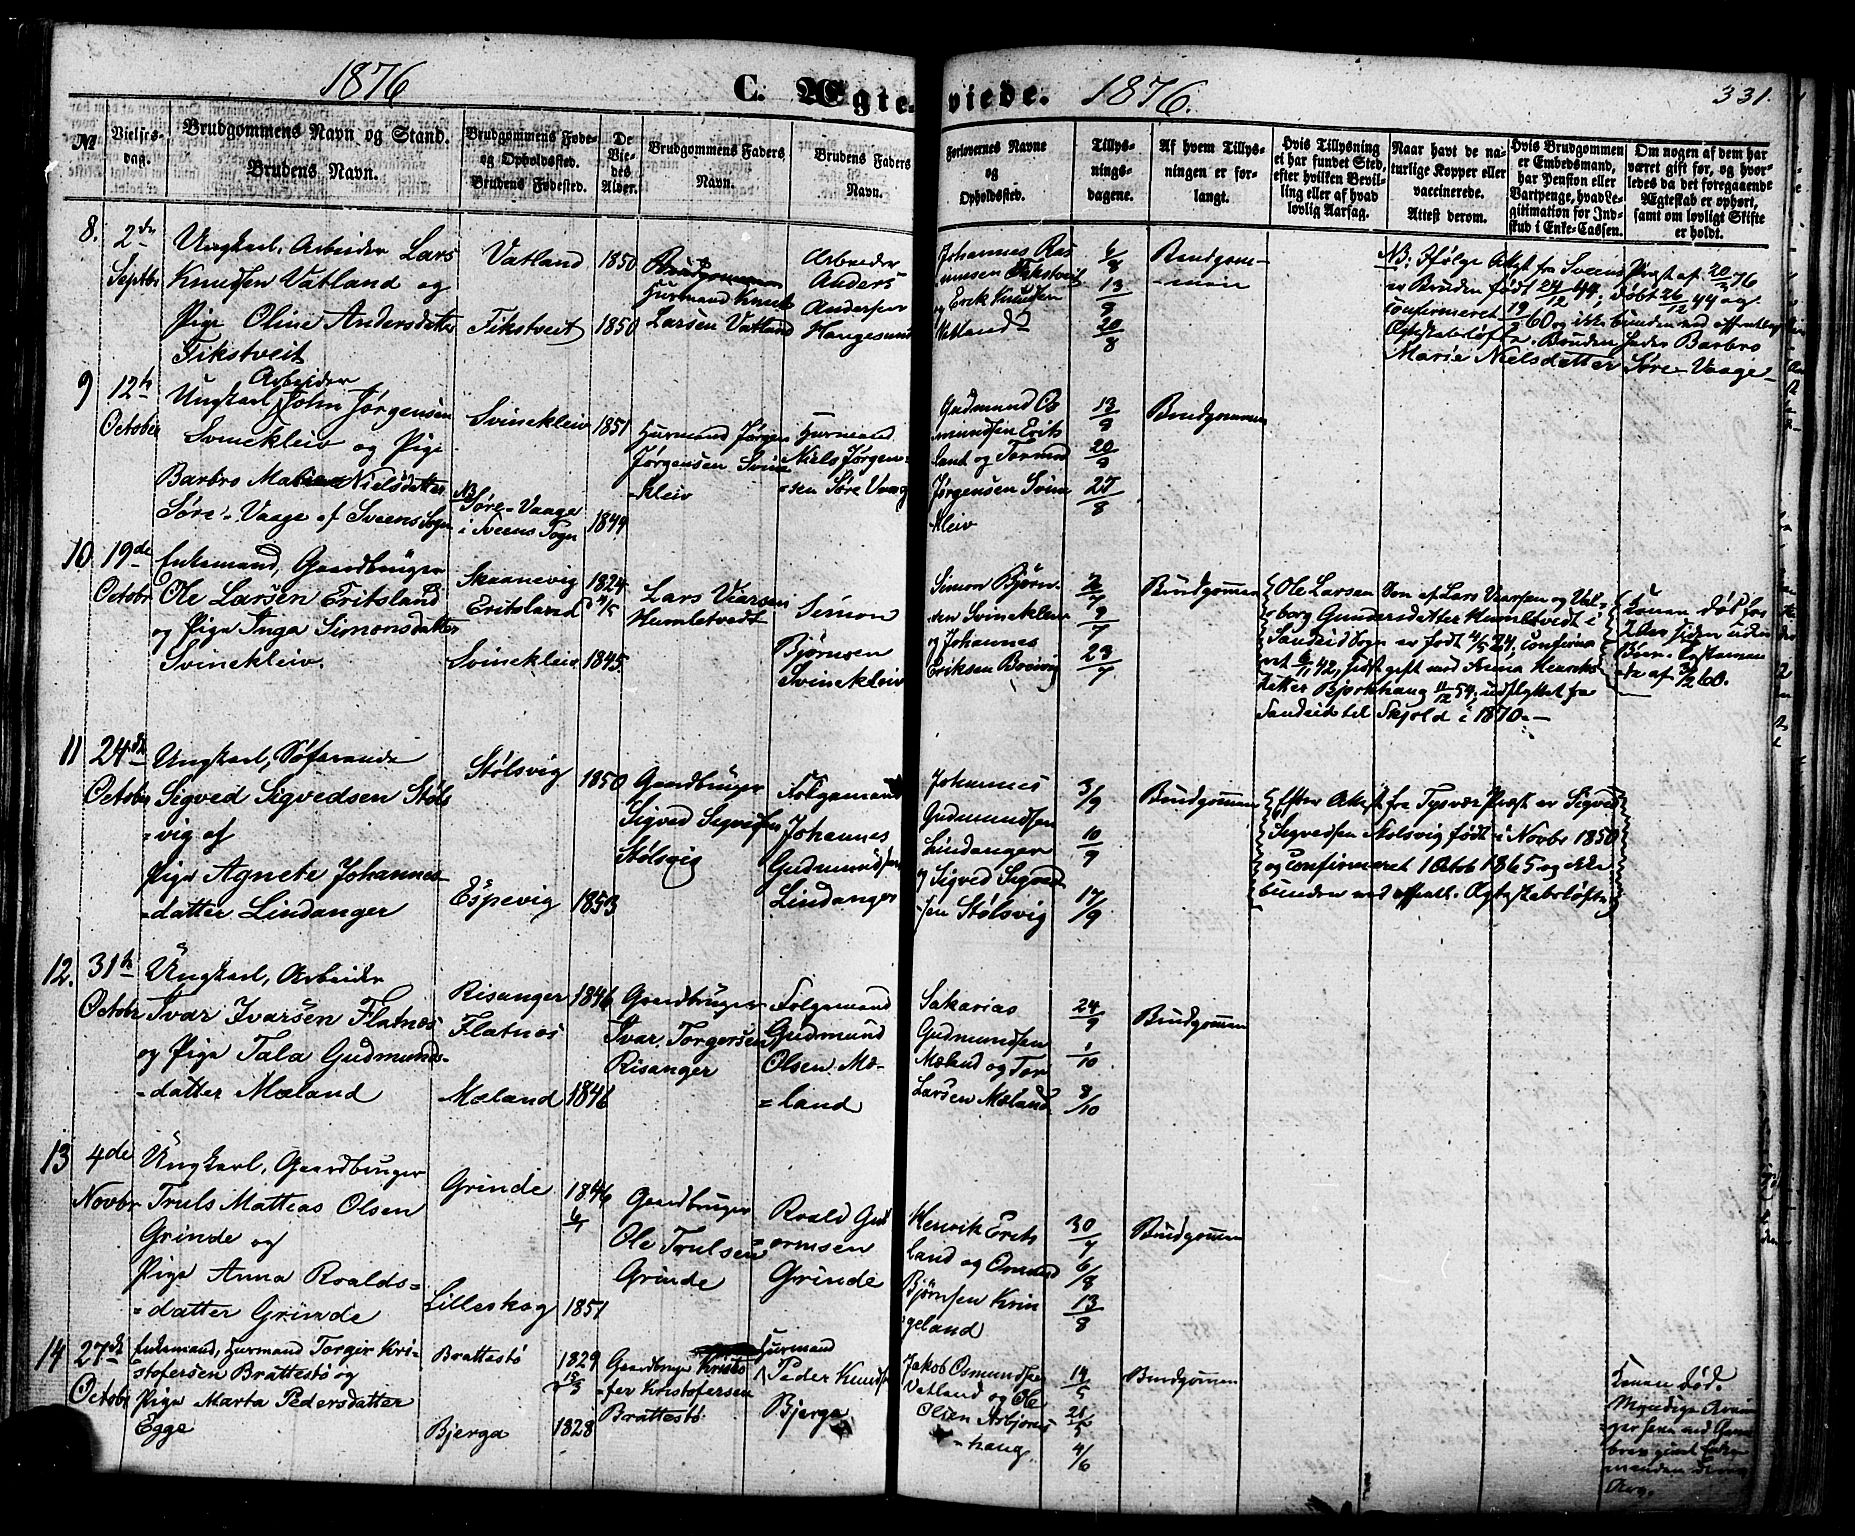 1876
C. Ægte-
viede. 1876.
331.
№
Vielses-
dag.
Brudgommens Navn og Stand.
Brudens Navn.
Brudgommens Føde-
og Opholdssted.
Brudens Fødested.
De
Vie-
des
Alder.
Brudgommens Faders
Navn.
Brudens Faders
Navn.
Forlovernes Navne
og
Opholdssted.
Tillys-
nings-
dagene.
Af hvem Tillys-
ningen er for-
langt.
Hvis Tillysning
ei har fundet Sted,
efter hvilken Bevil-
ling eller af hvad
lovlig Aarsag.
Naar havt de na-
turlige Kopper eller
vaccinerede.
Attest derom.
Hvis Brudgommen
er Embedsmand,
har Pension eller
Vartpenge, hvad Le-
gitimation for Ind-
skud i Enke-Cassen.
Om nogen af dem har
været gift før, og hvor-
ledes da det foregaaende
Ægteskab er ophørt,
samt om lovligt Skifte
er holdt.
8.
2den
Septbr
Ungkarl, Arbeider Lars
Knudsen Vatland og
Pige Oline Andersdatter
Fikstveit
Vatland
Fikstveit
1850
1850
Brudgommen
Huusmand Knut
Larsen Vatland
Arbeider
Anders
Andersen
Haugesund
Johannes Ras
musen Fikstveit
og Erik Knudsen
Vatland
6/8
13/8
20/8
Brudgom-
men
NB: Ifølge Attest fra Sveens Præst af 20/9 76
er Bruden født 24/12 44, døbt 26/12 44 og
confirmeret 19/ 60 og ikke bunden ved offentlig
Ægteskabsløfte. Bruden heder Barbro
Marie Nielsdatter Søre-Vaage
9
12te
October
Arbeider
Ungkarl John Jørgensen
Svinekleiv og Pige
Barbro Marie Nielsdatter
Søre-Vaage af Sveens Sogn
Svinekleiv
NB
Søre-Vaage
i Sveens Sogn
1851
1844
Huusmand Jørgen
Jørgensen Svine
-kleiv
Huusmand
Niels Jørgen-
sen Søre Vaage
Gudmund Os
mundsen Erits
land og Tormod
Jørgensen Svine
kleiv
13/8
20/8
27/8
Brudgommen
10
19de
Octobr
Enkemand, Gaardbruger
Ole Larsen Eritsland
og Pige Inga Simonsdatter
Svinekleiv.
Skaanevig
Eritsland
Svinekleiv
1824
d 4/5
1845.
Lars Viarsen
Humletvedt
Simon
Bjørnsen
Svinekleiv
Simon Bjørn-
sen Svinekleiv
og Johannes
Eriksen Breivig
2/7
9/7
23/7
Brudgommen
Ole Larsen Søn af Lars Viarsen og Val-
borg Gundersdatter Humletvedt i
Sandeid Sogn er født 4/5 24, confirme
ret 6/ 42, sidst gift med Anna Henriks
datter Bjorkhaug 11/12 54, udflyttet fra
Sandeid til Skjold i 1870.-
Konen død for
siden uden
Børn. Testamen
te af 60.
11
24de
October
Ungkarl, Søfarende
Sigved Sigvedsen Støls
-vig af
Pige Agnete Johannes-
-datter Lindanger
Stølsvig
Espevig
1850
1853
Gaardbruger
Sigved Sigvedsen
Stølsvig
Folgemand
Johannes
Gudmundsen
Lindanger
Johannes
Gudmundsen
Lindanger
og Sigved Sigved
-sen Stølsvig
3/9
10/9
17/9
Brudgommen
Efter Attest fra Tysvær Præst er Sigved
Sigvedsen Stølsvig født i Novbr 1850
og confirmeret 1 Octob 1865 og ikke
bunden ved offentl. Ægteskabsløfte
12.
31te
Octobr
Ungkarl, Arbeider
Ivar Ivarsen Flatnes
og Pige Tala Gudmunds-
-datter Mæland
Risanger
Flatnes
Mæland
1846
1846
Gaardbruger
Ivar Torgersen
Risanger
Folgemand
Gudmund
Olsen Mæ-
land
Sakarias
Gudmundsen
Mæland og Tor
Larsen Mæland
24/9
1/10
8/10
Brudgommen
13
4de
Novbr
Ungkarl, Gaardbruger
Truls Mattias Olsen
Grinde og
Pige Anna Roalds-
-datter Grinde
Grinde
Lilleskog
1846
6/1
1851
Gaardbruger
Ole Trulsen
Grinde
Roald Gut
ormsen
Grinde
Henrik Erits
land og Osmund
Bjørnsen Krin
geland
30/7
6/8
13/8
Brudgommen
14
27de
Octobr
Enkemand, Huusmand Torger Kri-
stofersen Brattestø og
Pige Marta Pedersdatter
Egge
Brattestø
Bjerga
1829
15/3
1828
Gaardbruger Kristo
-fer Kristofersen
Brattestø
Huusmand
Peder Knudsen
Bjerga
Jakob Osmundsen
Vatland og Ole
Olsen Asbjørns
-haug
14/5
21/5
4/6
Brudgommen
Konen død.